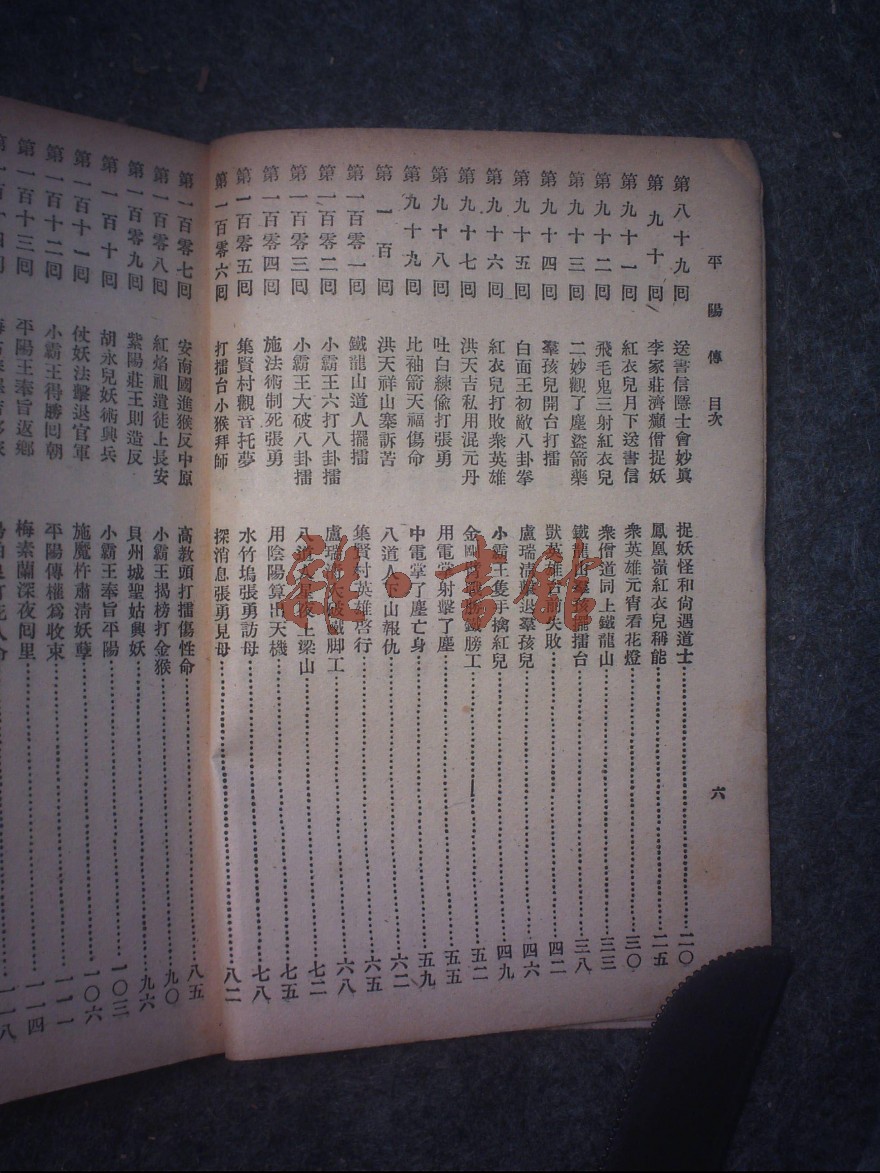 平陽傳 目次 六
第八十九回 送書信隱士會妙眞 捉妖怪和尙遇道士 二〇
第九十回 李家莊濟癲僧捉妖 鳳凰嶺紅衣兒稱能 二五
第九十一回 紅衣兒月下送書信 衆英雄元宵看花燈 三〇
第九十二回 飛毛鬼三射紅衣兒 衆僧道同上鐵龍山 三三
第九十三回 二妙觀了塵盜箭藥 鐵龍山羣孩擺擂台 三八
第九十四回 羣孩兒開台打擂 獸英雄台前失敗 四二
第九十五回 白面王初敵八卦拳 盧瑞清 退羣孩兒 四六
第九十六回 紅衣兒打敗衆英雄 小霸王隻手擒紅兒 四九
第九十七回 洪天吉私用混元丹 金 戰 勝工 五二
第九十八回 吐白練偸打張勇 用電掌射擊了塵 五五
第九十九回 比袖箭天福傷命 中電掌了塵亡身 五九
第一百回 洪天祥山寨訴苦 八道人下山報仇 六二
第一百零一回 鐵龍山道人擺擂 集賢村英雄啓行 六五
第一百零二回 小霸王六打八卦擂 盧瑞 大破鐵脚工 六八
第一百零三回 小霸王大破八卦擂 八道人星夜上梁山 七二
第一百零四回 施法術制死張勇 用陰陽算出天機 七五
第一百零五回 集賢村觀音托夢 水竹塢張勇訪母 七八
第一百零六回 打擂台小猴拜師 探消息張勇見母 八二
第一百零七回 安南國進猴反中原 高教頭打擂傷性命 八五
第一百零八回 紅焰祖遣徒上長安 小霸王揭榜打金猴 九〇
第一百零九回 紫陽莊王則造反 貝州城聖姑興妖 九六
第一百十回 胡永兒妖術興兵 小霸王奉旨平陽 一〇三
第一百十一回 仗妖法擊退官軍 施魔杵肅清妖孽 一〇六
第一百十二回 小霸王得勝回朝 平陽傳權爲收束 一一一
第一百十三回 平陽王奉旨返鄉 梅素蘭深夜回里 一一四
一一八
雜·書館